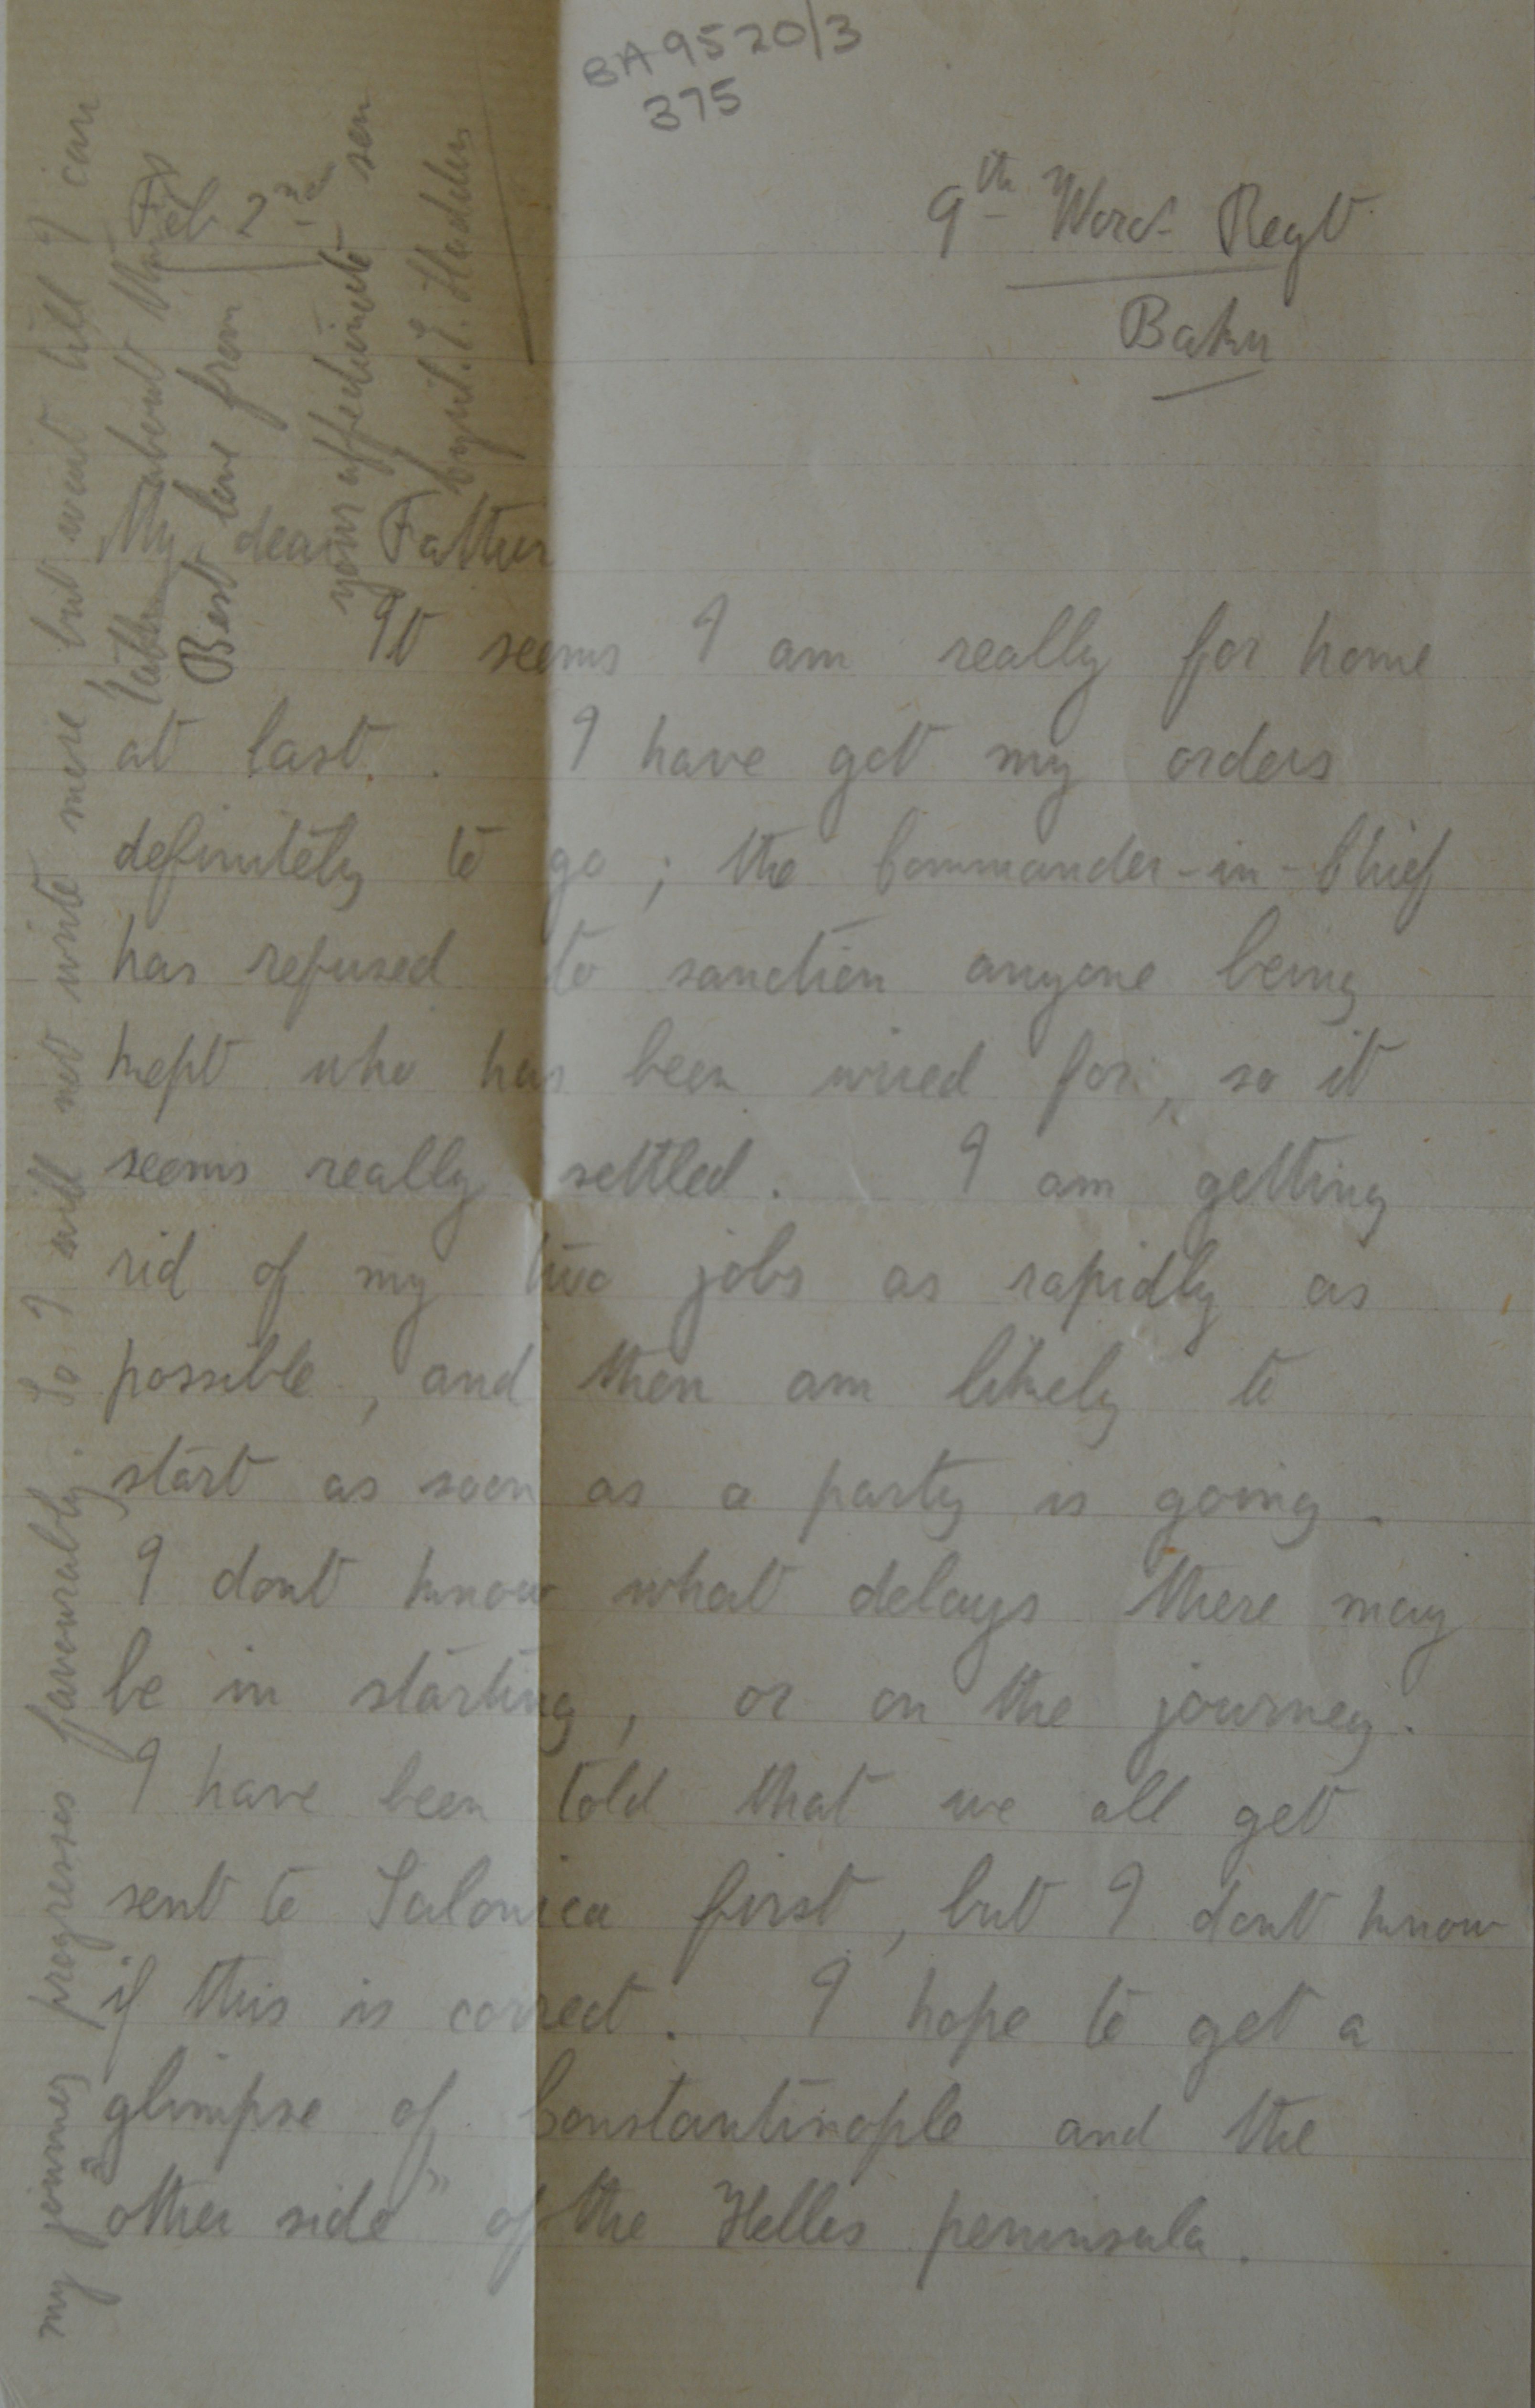 BA 9520/3
375
9th Worc. Regt
Baku
Feb 2
My dear Father
It seems I am really for home
at last. I have got my orders
definitely to go ; the Commander-in-Chief
has refused to sanction anyone being
kept who has been wired for, so it
seems really settled. I am getting
rid of my two jobs as rapidly as
possible, and then am likely to
start as soon as a party is going.
I dont know what delays there may
be in starting, or on the journey.
I have been told that we all get
sent to Salonica first, but I dont know
if this is correct. I hope to get a
glimpse of Constantinople and the
"other side" of the Helles peninsula.
my journey progresses favourably. So I will not write more, but wait till I can
about
Best love from
your affectionate son
Cyril. E. Sladden